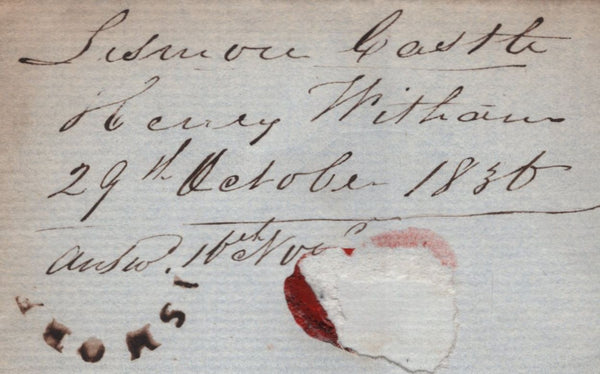 Lismore Castle
Henry Witham
29th October 1836
Answd. 16th Novr